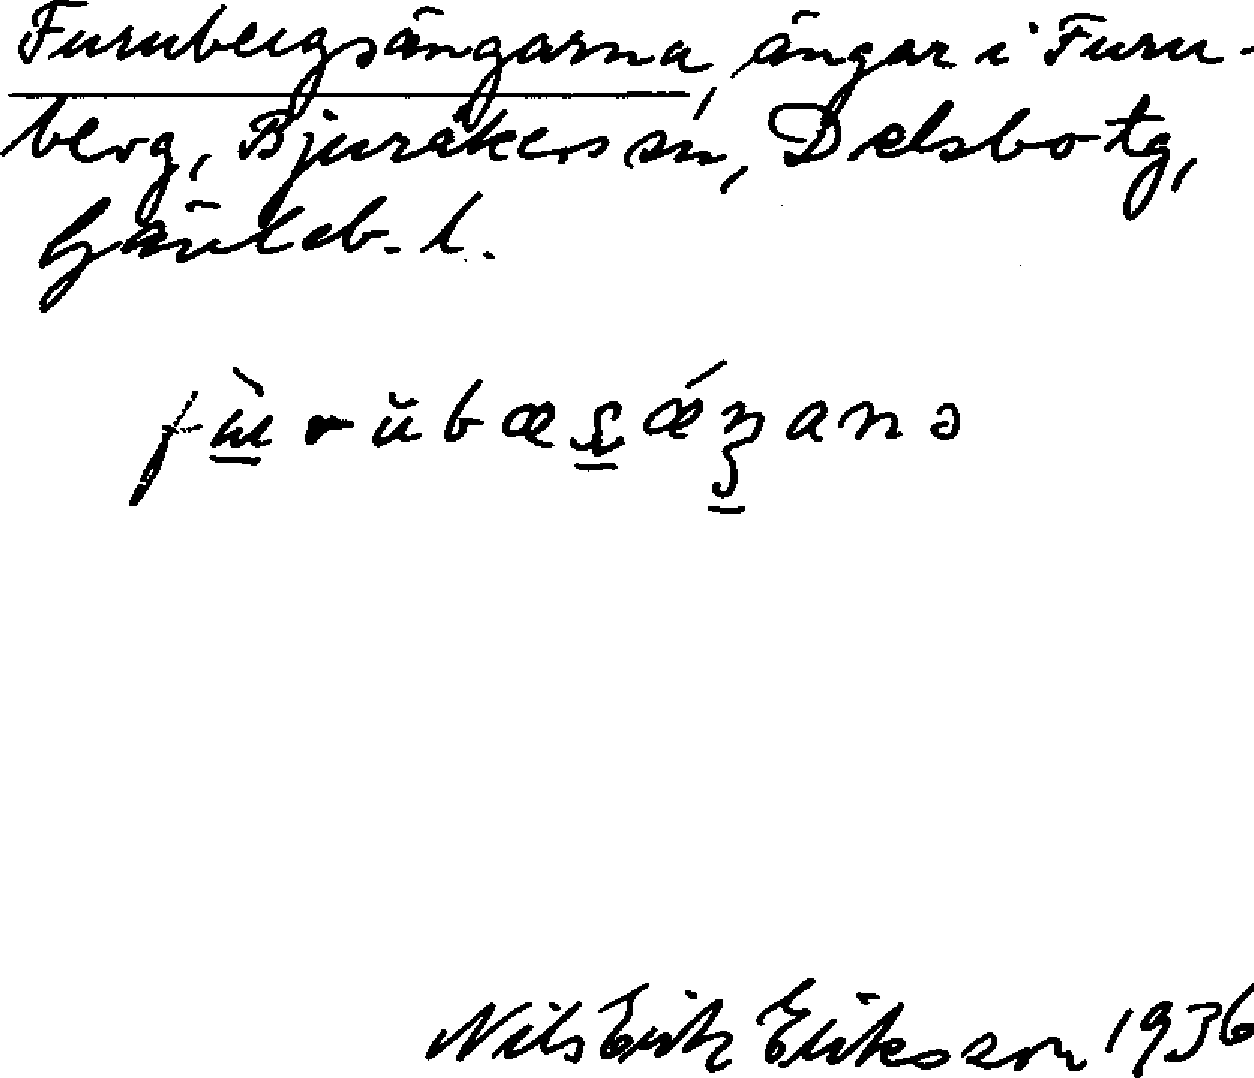 Furubergsängarna, ängar i Furu-
berg, Bjuråkers sn, Delsbo tg,
Gävleb. l.
Nils Erik Eriksson 1936